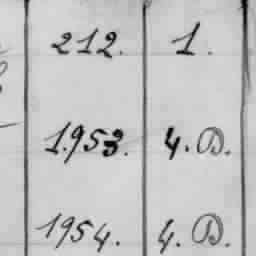 212. 1.
1.953. 4. B.
1954. 4. B.